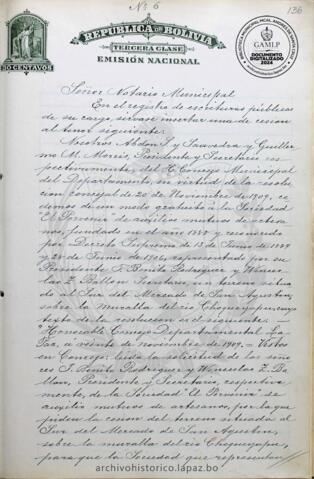 No 6
136
REPÚBLICA DE BOLIVIA
TERCERA CLASE
EMISIÓN NACIONAL
50 CENTAVOS
GAMLP
DOCUMENTO
DIGITALIZADO
2024
Señor Notario Municipal
En el registro de escrituras públicas
de su cargo sírvase insertar una de cesion
al tenor siguiente:
Nosotros Abdon S. Saavedra y Guiller
mo M. Morris, Presidente y Secretario res
pectivamente del H. Concejo Municipal
del Departamento, en virtud de la reso
lucion concejal de 20 de Noviembre de 1909, ce
demos de un modo gratuito á la Sociedad
"El Porvenir" de auxilios mutuos de artesa
nos, fundada en el año y reconocida
por Decreto Supremo de 13 de Junio de
y 20 de Junio de 1906, representada por su
Presidente Benito Rodriguez y Wences
lao Z. Ballon Secretario, un terreno situa
do al Sur del Mercado de San Agustin,
sobre la muralla del rio Choqueyapu, cuyo
texto de la resolucion es el siguiente.
"Honorable Concejo Departamental La
Paz, á veinte de noviembre de 1909. Vistos
en Concejo: leida la solicitud de los seño
res Benito Rodriguez y Wenceslao Z. Ba
llon, Presidente y Secretario, respectiva
mente, de la Sociedad "El Porvenir" de
auxilios mutuos de artesanos, por la que
piden la cesion del terreno situado al
Sur del Mercado de San Agustin,
sobre la muralla del rio Choqueyapu,
para que la Sociedad que representan
archivohistorico.lapaz.bo